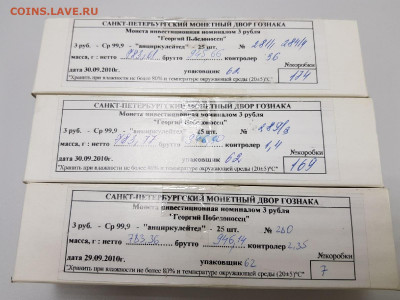 COINS.LAVE.RU
САНКТ-ПЕТЕРБУРГСКИЙ МОНЕТНЫЙ ДВОР ГОЗНАКА
Монета инвестиционная номиналом 3 рубля
"Георгий Победоносец"
3 руб. - Ср 99,9 - "анциркулейтед" - 25 шт. №
масса, г : нетто брутто контролер 56
дата 30.09.2010г. упаковщик 62
№коробки
174
"Хранить при влажности не более 80% и температуре окружающей среды (20±5)°С"
САНКТ-ПЕТЕРБУРГСКИЙ МОНЕТНЫЙ ДВОР ГОЗНАКА
Монета инвестиционная номиналом 3 рубля
"Георгий Победоносец"
3 руб. - Ср 99,9 - "анциркулейтед" - шт. №
масса, г : нетто брутто контролер 1,4
дата 30.09.2010г. упаковщик 62
№коробки
169
"Хранить при влажности не более 80% и температуре окружающей среды (20±5)°С"
САНКТ-ПЕТЕРБУРГСКИЙ МОНЕТНЫЙ ДВОР ГОЗНАКА
Монета инвестиционная номиналом 3 рубля
"Георгий Победоносец"
3 руб. - Ср 99,9 - "анциркулейтед" - 25 шт. № 280
масса, г : нетто 783,36 брутто 946,14 контролер 2.35
дата 29.09.2010г. упаковщик 62
№коробки
7
"Хранить при влажности не более 80% и температуре окружающей среды (20±5)°С"